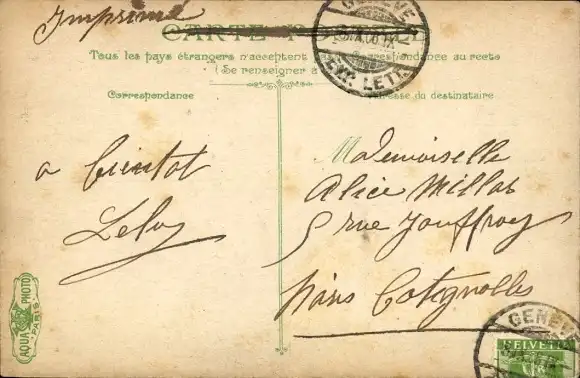 Imprimé
CARTE POSTALE
GENÈVE
EXP. LETT.
Tous les pays étrangers n'acceptent correspondance au recto
(Se renseigner à
Correspondance
Adresse du destinataire
a bientot
Mademoiselle
Alice Millot
5 rue Jouffroy
Paris Batignolles
AQUA PHOTO
PARIS
GENÈVE
HELVETIA